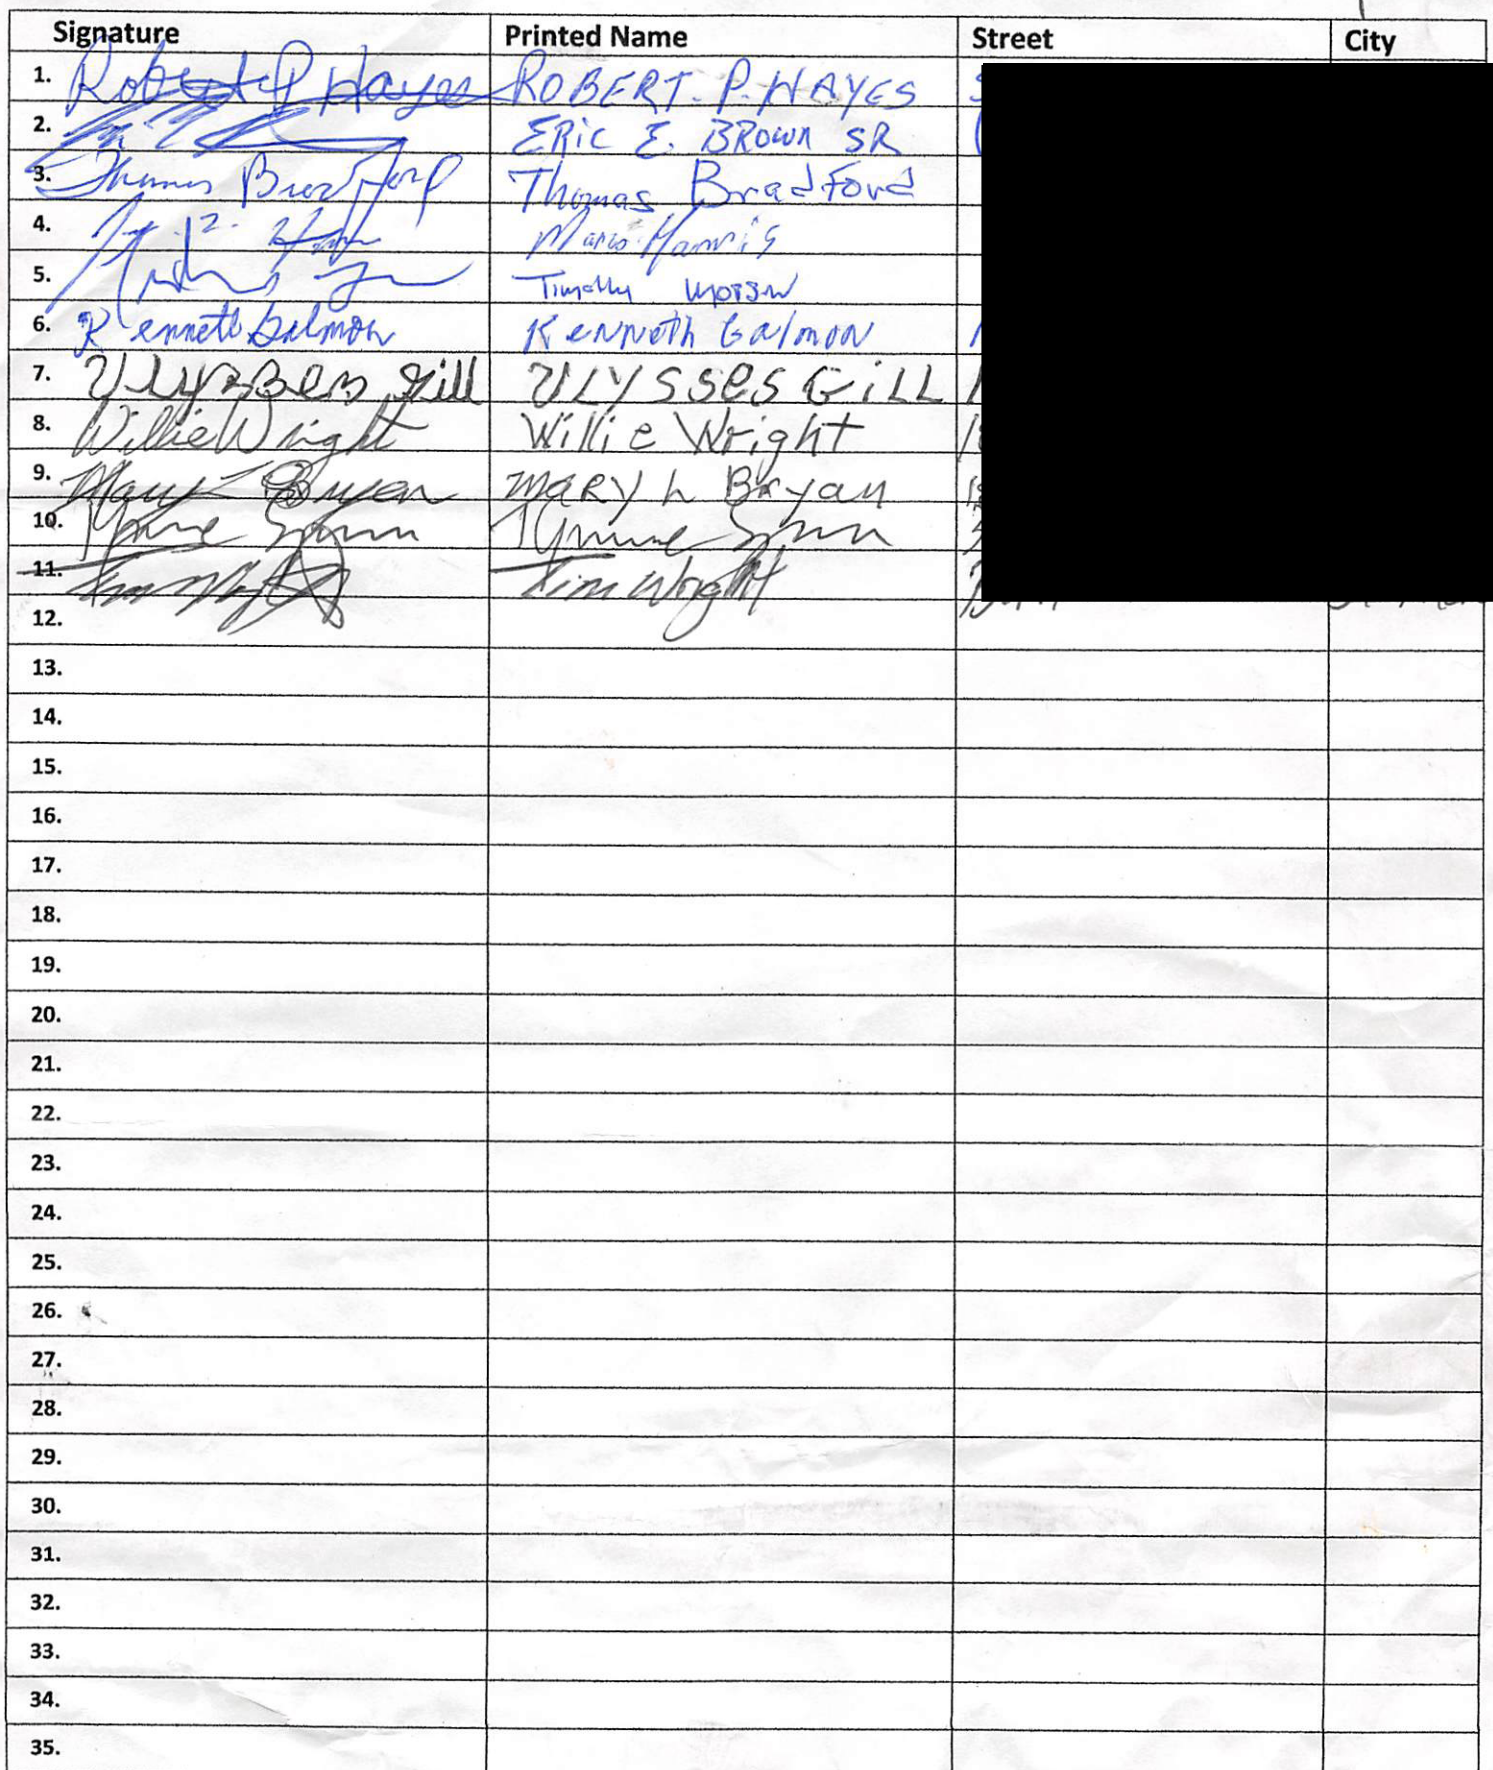 Signature Printed Name Street City
1. Robert P Hayes ROBERT. P. HAYES
2. ERIC E. BROWN SR
3. Thomas Bradford Thomas Bradford
4. Harris
5. Timothy
6. Kenneth Galmon Kenneth Galmon
7. Ulysses Gill ULYSSES GILL
8. Willie Wright Willie Wright
9. Mary L Bryan MARY L Bryan
10.
11. Tim Wright
12.
13.
14.
15.
16.
17.
18.
19.
20.
21.
22.
23.
24.
25.
26.
27.
28.
29.
30.
31.
32.
33.
34.
35.